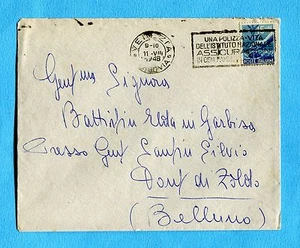 VENEZIA
9-10
11.VIII
1948
UNA POLIZZA VITA
DELL'ISTITUTO NAZIONALE
ASSICURA
POSTE ITALIANE
Gent.ma Signora
Battistin Elda in Garbisa
Presso Gent Sanfin Silvio
Dont di Zoldo
(Belluno)